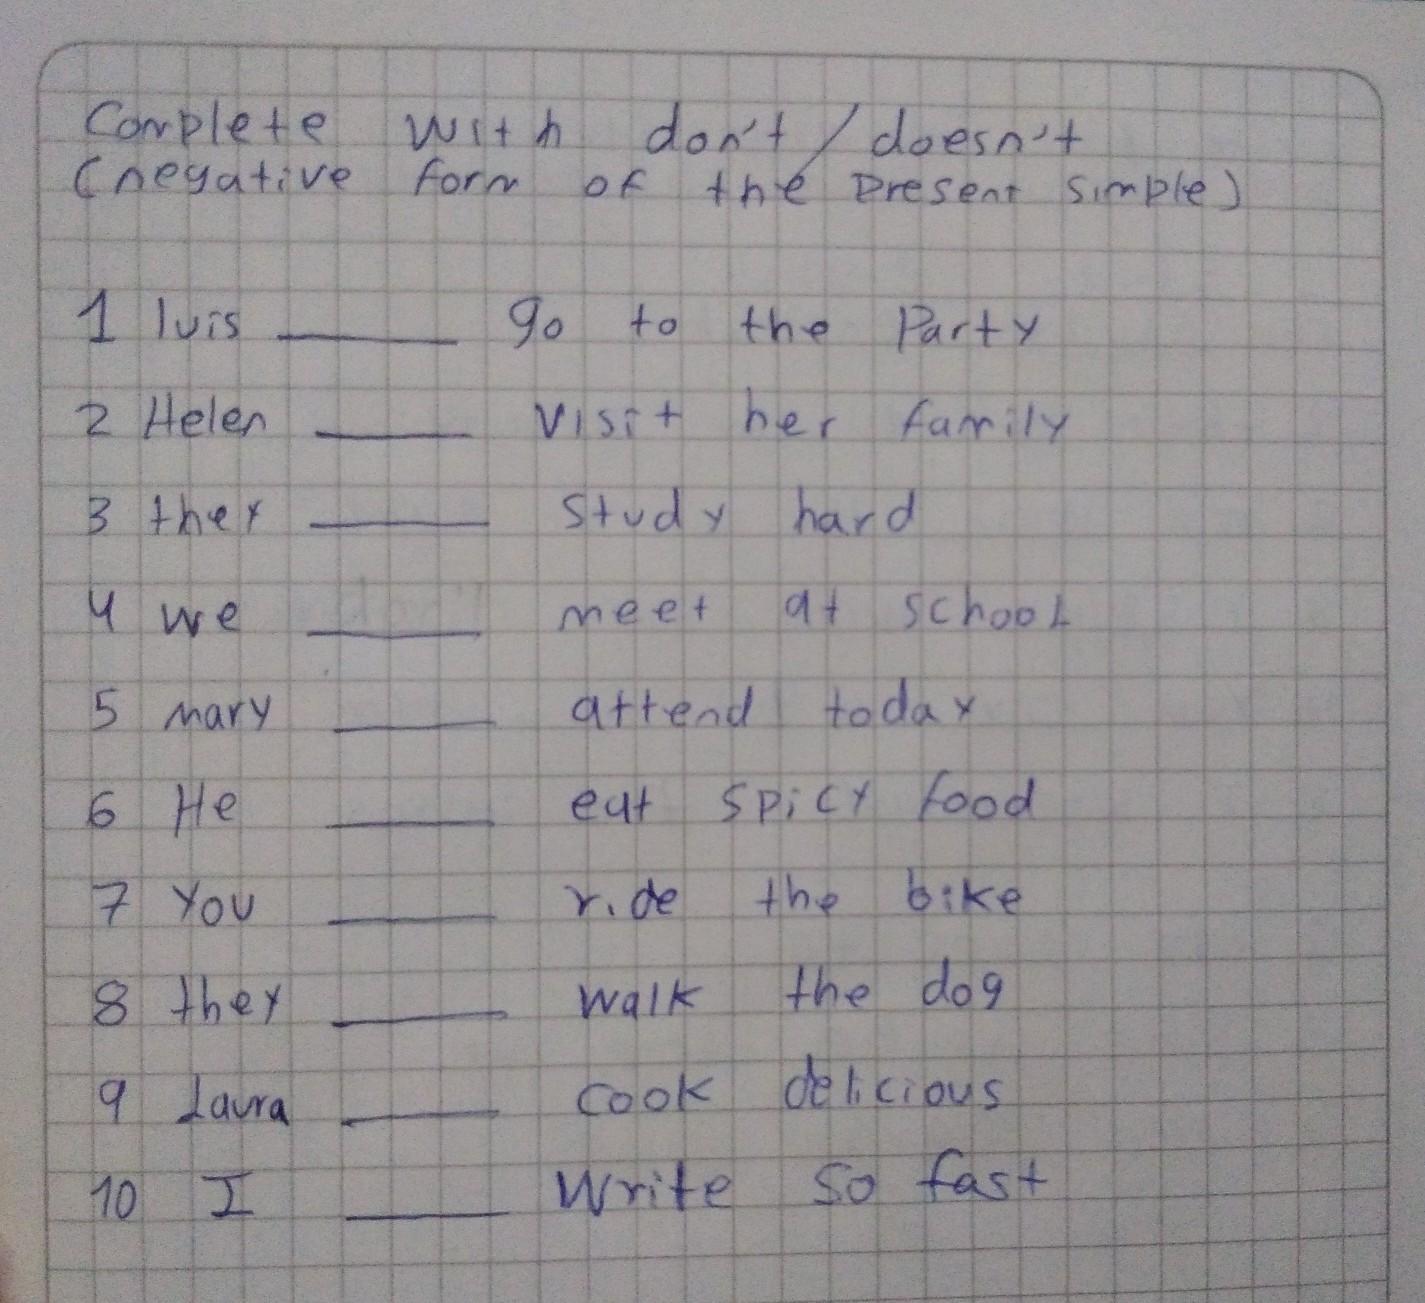 Complete with don't / doesn't
(negative form of the present simple)
1 luis ______ go to the Party
2 Helen ______ visit her family
3 they ______ study hard
4 we ______ meet at school
5 mary ______ attend today
6 He ______ eat spicy food
7 You ______ ride the bike
8 they ______ walk the dog
9 Laura ______ cook delicious
10 I ______ Write so fast